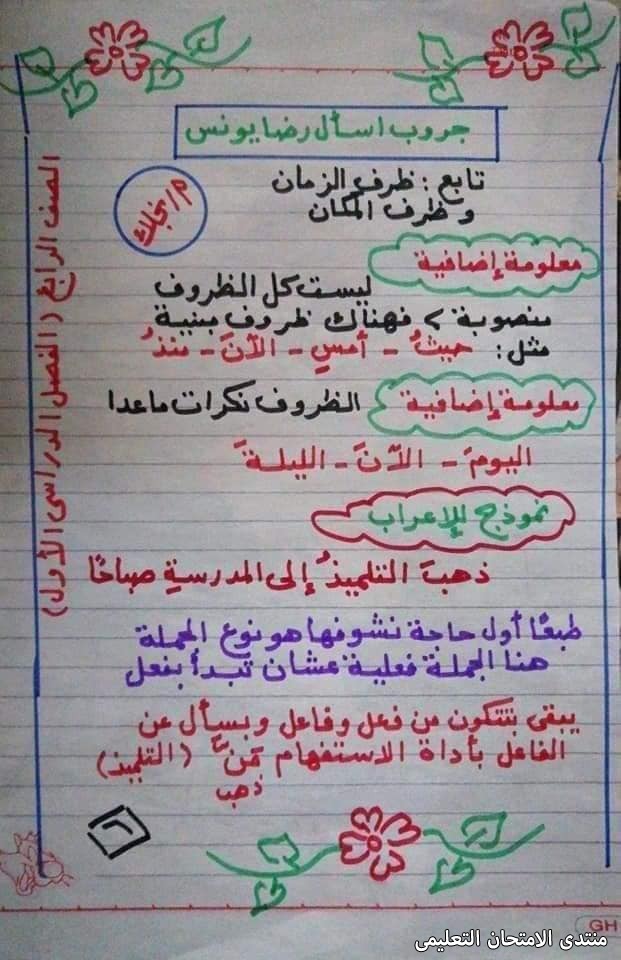 جروب اسأل رضا يونس
تابع: ظرف الزمان
و ظرف المكان
م/نجلاء
الصف الرابع (الفصل الدراسى الأول)
معلومة إضافية ليست كل الظروف
منصوبة > فهناك ظروف مبنية
مثل: حيثُ - أمسِ - الآنَ - منذُ
معلومة إضافية الظروف نكرات ماعدا
اليومَ - الآنَ - الليلةَ
نموذج للإعراب
ذهبَ التلميذُ إلى المدرسةِ صباحًا
طبعًا أول حاجة نشوفها هو نوع الجملة
هنا الجملة فعلية عشان تبدأ بفعل
يبقى بتتكون من فعل وفاعل وبسأل عن
الفاعل بأداة الاستفهام مَنْ (التلميذ)
ذهب
٦
GH
منتدى الامتحان التعليمى